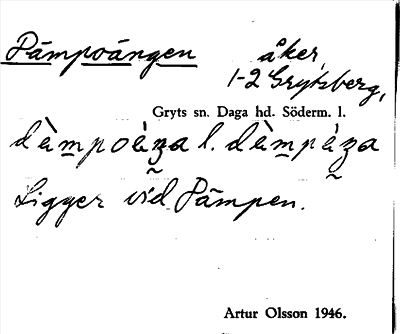 Pämpoängen åker,
1-2 Grytsberg,
Gryts sn. Daga hd. Söderm. l.
l.
Ligger vid Pämpen.
Artur Olsson 1946.